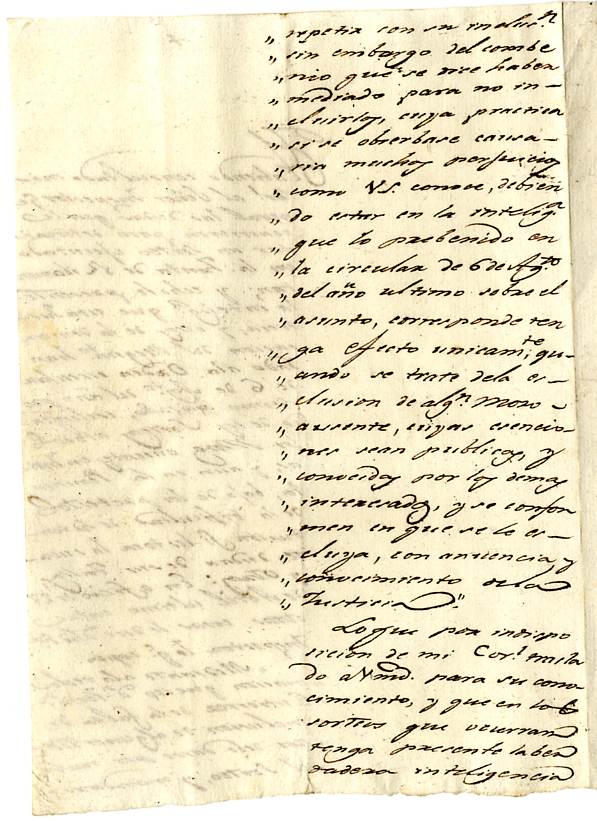 „ repetir con su inclus.n
„ sin embargo del combe
„ nio que se dice haber
„ mediado para no in-
„ cluirlos, cuya practica
„ si se obserbase causa-
„ ria muchos perjuicios
„ como VS. conoce, debien
„ do estar en la intelig.a
„ que lo prebenido en
„ la circular de 6 de Ag.to
„ del año ultimo sobre el
„ asunto, corresponde ten
„ ga efecto unicam.te qu-
„ ando se trate dela es-
„ clusion de alg.n Mozo-
„ ausente, cuyas esencio-
„ nes sean publicas, y
„ conocidas por los demas
„ interesados, y se confor
„ men en que se le es-
„ cluya, con anuencia, y
„ conocimiento de la
„ Justicia."
Lo que por indispo
sicion de mi Cor.l trasla
do a Vmd. para su cono-
cimiento, y que en los
sorteos que ocurran
tenga presente la ber
dadera inteligencia